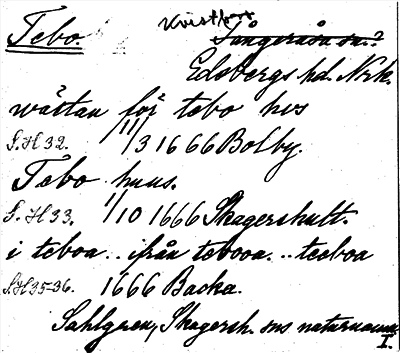 Tebo.
Kvistbro
Tångeråsa sn.?
Edsbergs hd. Nrk.
wåttan för tebo hvs
S.H 32. 11/3 1666 Bolby.
Tebo huus.
S. H 33. 1/10 1666 Skagershult.
i teboa.. ifrån tebooa... teeboa
S.H 35-36. 1666 Backa.
Sahlgren, Skagersh. sns naturnamn
I.